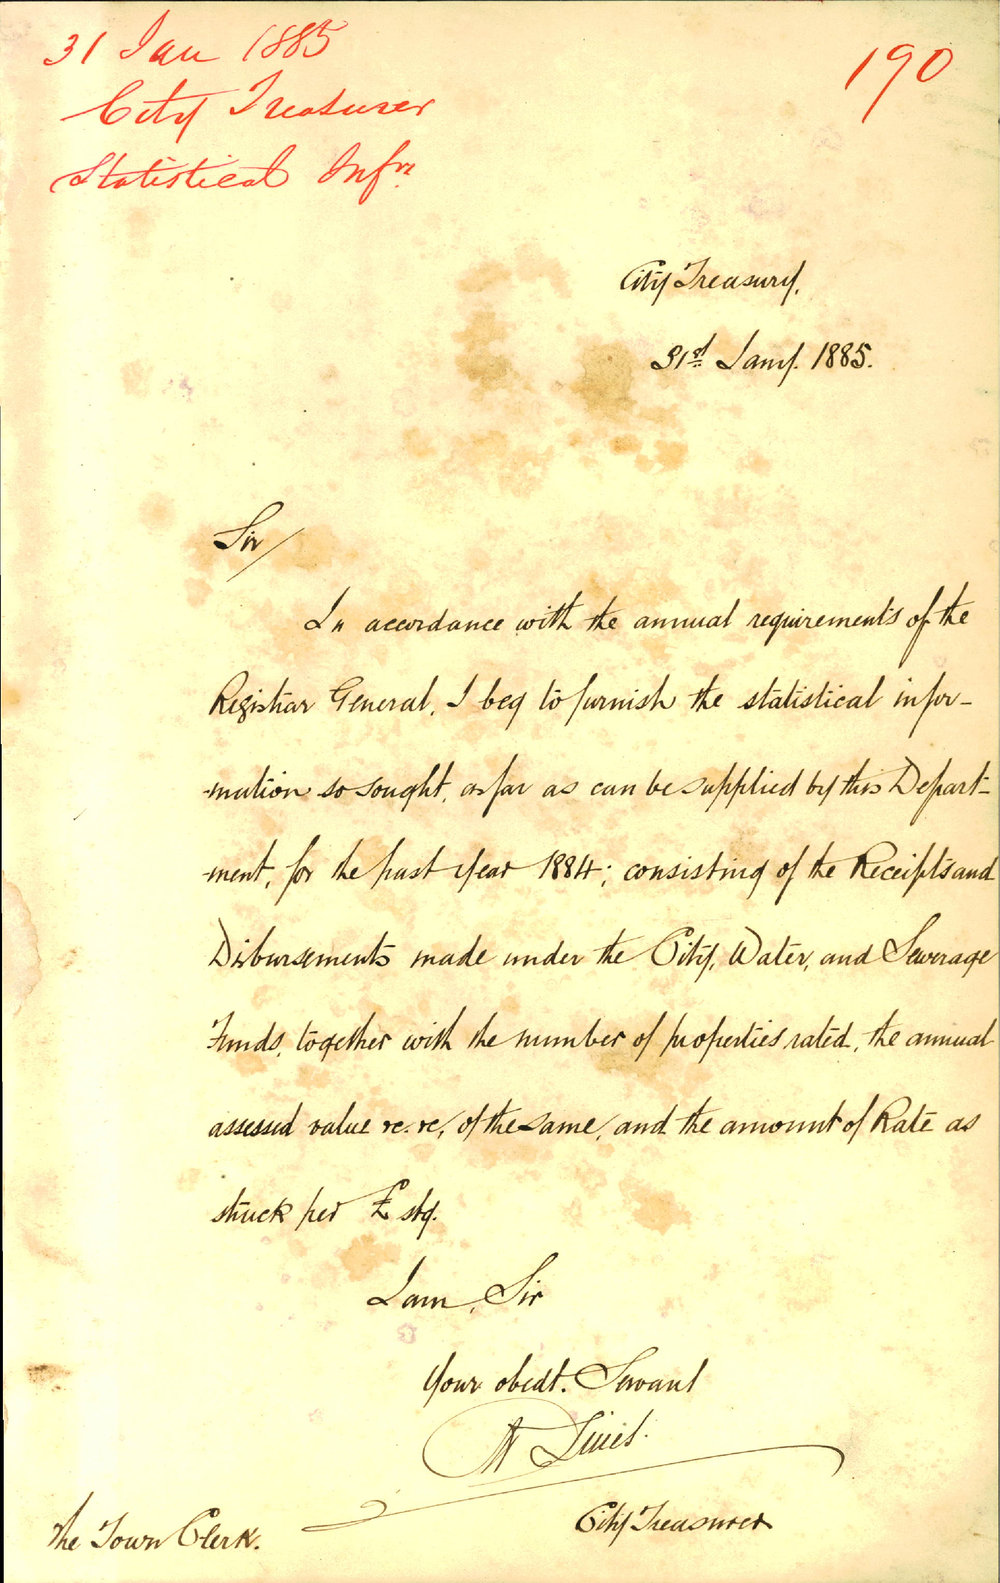 31 Jan 1885
190
City Treasurer
Statistical Infn.
City Treasury,
31st Jany. 1885.
Sir/
In accordance with the annual requirements of the
Registrar General, I beg to furnish the statistical infor-
-mation so sought, as far as can be supplied by this Depart-
-ment, for the past year 1884; consisting of the Receipts and
Disbursements made under the City, Water, and Sewerage
Funds, together with the number of properties rated, the annual
assessed value &c. &c, of the same, and the amount of Rate as
struck per £ stg.
I am, Sir
Your obedt. Servant
City Treasurer
The Town Clerk.